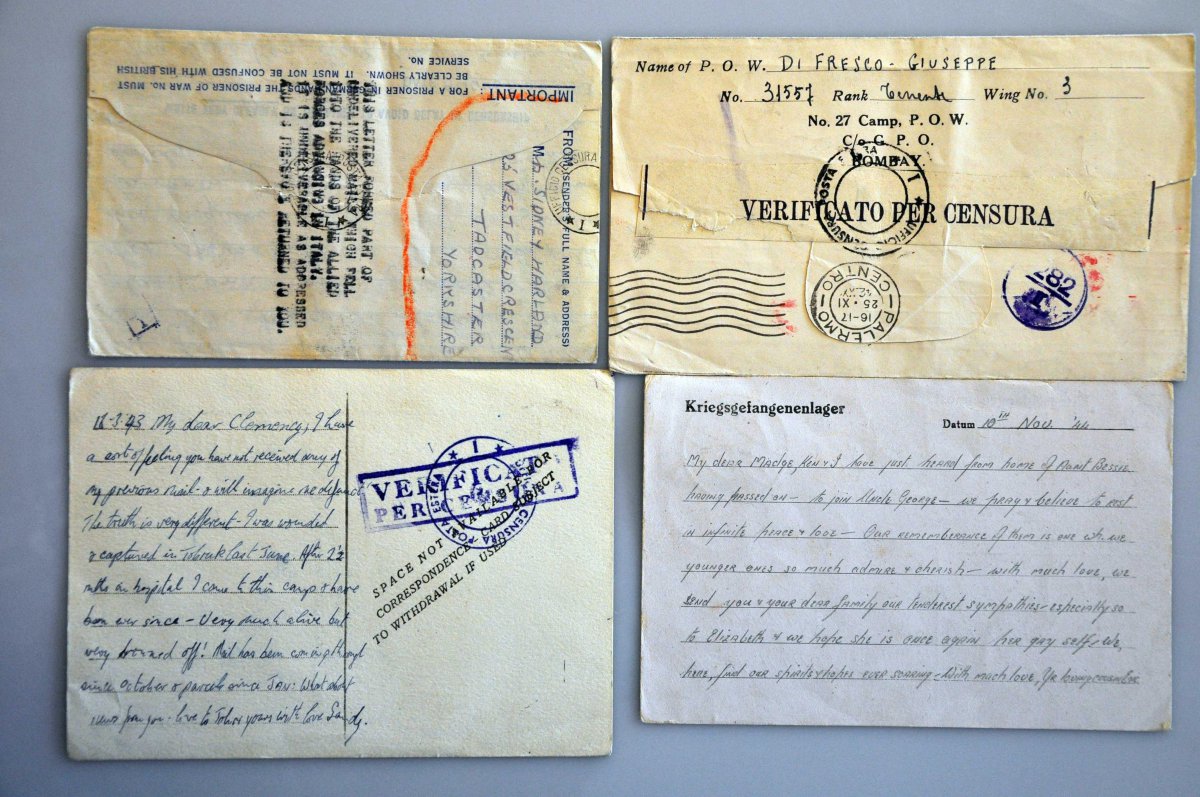 IMPORTANT
FOR A PRISONER IN GERMAN HANDS THE PRISONER OF WAR No. MUST
BE CLEARLY SHOWN. IT MUST NOT BE CONFUSED WITH HIS BRITISH
SERVICE No.
THIS LETTER FORMED PART OF
UNDELIVERED MAILS WHICH FELL
INTO THE HANDS OF THE ALLIED
FORCES ADVANCING IN ITALY.
IT IS UNDELIVERABLE AS ADDRESSED
AND IS THEREFORE RETURNED TO YOU.
FROM (SENDER'S FULL NAME & ADDRESS)
Mr. SIDNEY HARLAND
25 WESTFIELD CRESCEN
TADCASTER
YORKSHIRE
Name of P. O. W. DI FRESCO - GIUSEPPE
No. 31557 Rank Tenente Wing No. 3
No. 27 Camp, P. O. W.
C/o G. P. O.
BOMBAY.
VERIFICATO PER CENSURA
PALERMO
CENTRO
16-17
25·XI
282
I
18-3.43. My dear Clemency, I have
a sort of feeling you have not received any of
my previous mail & will imagine me defunct
The truth is very different - I was wounded
& captured in Tobruk last June. After 2½
mths in hospital I came to this camp & have
been ever since - Very much alive but
very browned off! Mail has been coming through
since October & parcels since JAN: What about
news from you - love to John & yours with love Sandy.
VERIFICAT
PER CENSURA
CENSURA POSTA ESTERA
SPACE NOT AVAILABLE FOR
CORRESPONDENCE. CARD SUBJECT
TO WITHDRAWAL IF USED
Kriegsgefangenenlager
Datum 10TH Nov. '44
My dear Madge, Ken & I have just heard from home of Aunt Bessie
having passed on — to join Uncle George — we pray & believe to rest
in infinite peace & love — Our rememberance of them is one wh. we
younger ones so much admire & cherish — with much love, we
send you & your dear family our tenderest sympathies — especially so
to Elizabeth & we hope she is once again her gay self. We,
here, find our spirits & hopes ever soaring - With much love, Yr loving cousin